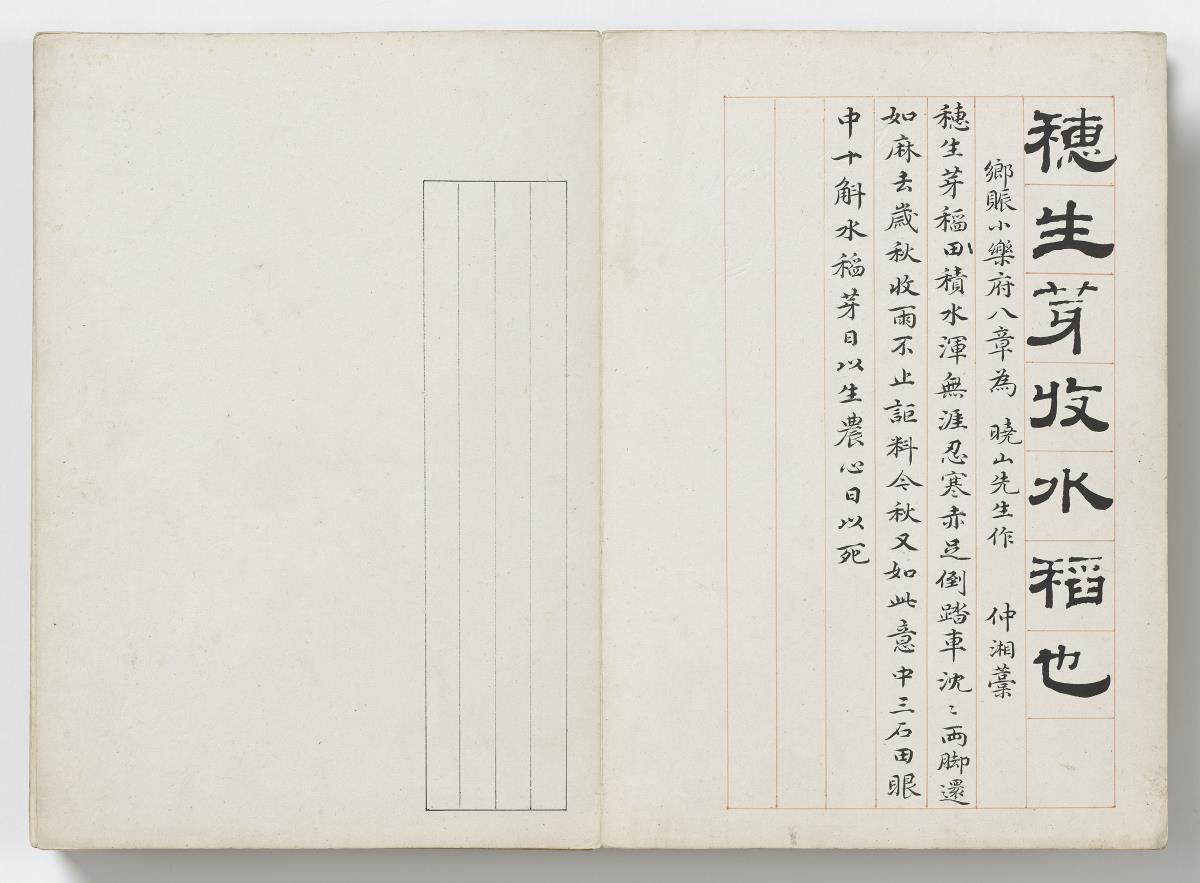 穗生芽收水稻也
鄉賑小樂府八章為 曉山先生作 仲湘藳
穗生芽稻田積水渾無涯忍寒赤足倒踏車沈〻兩脚還
如麻去歲秋收雨不止詎料今秋又如此意中三石田眼
中十斛水稻芽日以生農心日以死